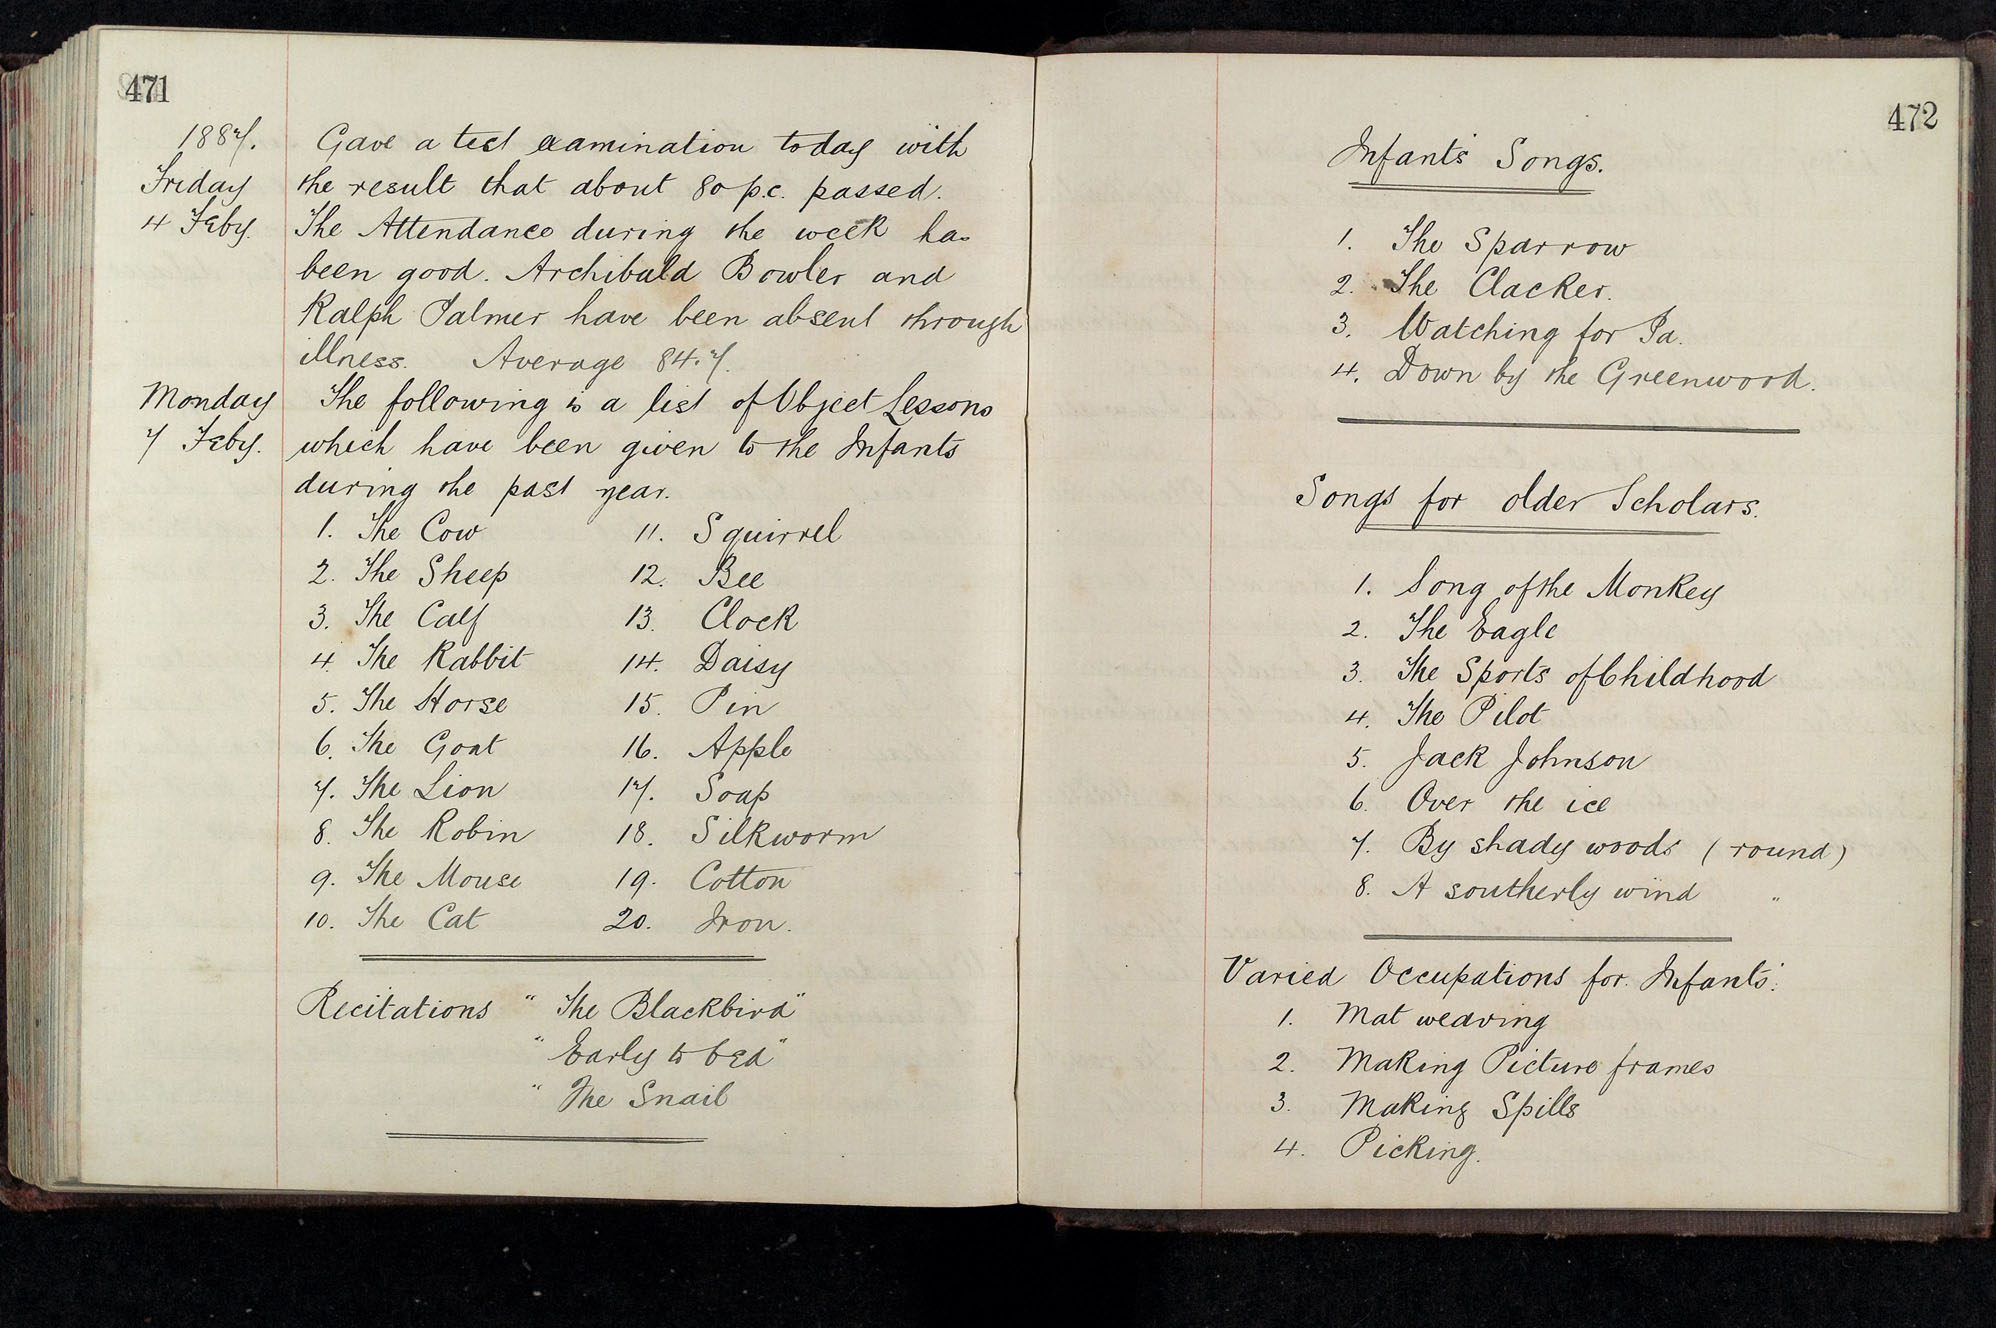 471
1887.
Friday
4 Feby.
Gave a test examination today with
the result that about 80 p.c. passed.
The Attendance during the week has
been good. Archibald Bowler and
Ralph Palmer have been absent through
illness. Average 84.7.
Monday
7 Feby.
The following is a list of Object Lessons
which have been given to the Infants
during the past year.
1. The Cow
2. The Sheep
3. The Calf
4. The Rabbit
5. The Horse
6. The Goat
7. The Lion
8. The Robin
9. The Mouse
10. The Cat
11. Squirrel
12. Bee
13. Clock
14. Daisy
15. Pin
16. Apple
17. Soap
18. Silkworm
19. Cotton
20. Iron.
Recitations " The Blackbird"
" Early to bed"
" The Snail
472
Infants' Songs.
1. The Sparrow
2. The Clacker.
3. Watching for Pa.
4. Down by the Greenwood.
Songs for older Scholars.
1. Song of the Monkey
2. The Eagle
3. The Sports of Childhood
4. The Pilot
5. Jack Johnson
6. Over the ice
7. By shady woods (round)
8. A southerly wind "
Varied Occupations for Infants'.
1. Mat weaving
2. Making Picture frames
3. Making Spills
4. Picking.